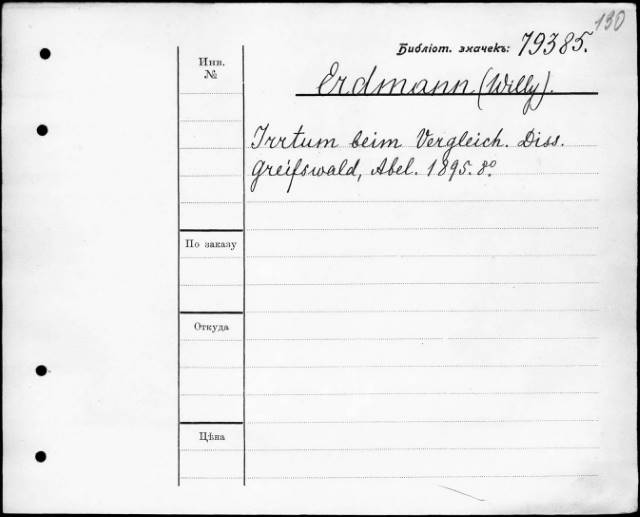 130
Библіот. значекъ: 79385.
Инв.
№
Erdmann (Willy).
Irrtum beim Vergleich. Diss.
Greifswald, Abel. 1895. 8°.
По заказу
Откуда
Цѣна